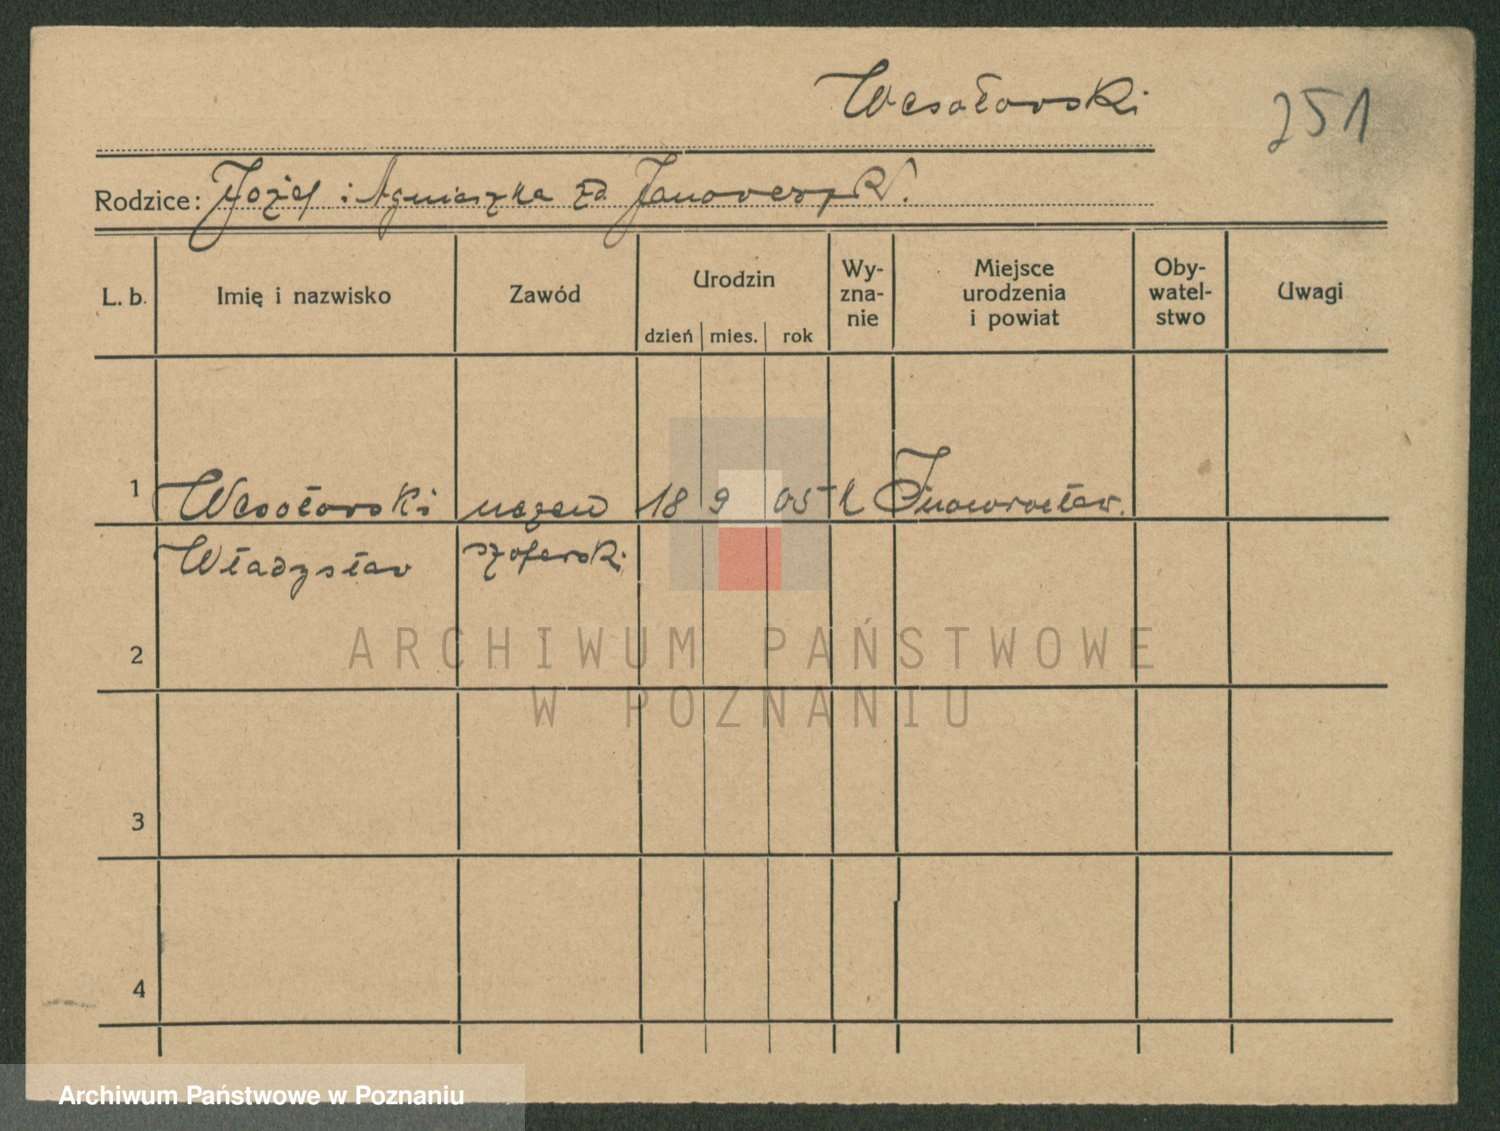 Wesołowski
251
Rodzice: Józef i Agnieszka zd.
L. b.
Imię i nazwisko
Zawód
Urodzin
dzień mies. rok
Wy-
zna-
nie
Miejsce
urodzenia
i powiat
Oby-
watel-
stwo
Uwagi
1 Wesołowski uczeń 18 9 05 k Inowrocław.
Władysław szoferski
2
3
4
ARCHIWUM PAŃSTWOWE
W POZNANIU
Archiwum Państwowe w Poznaniu